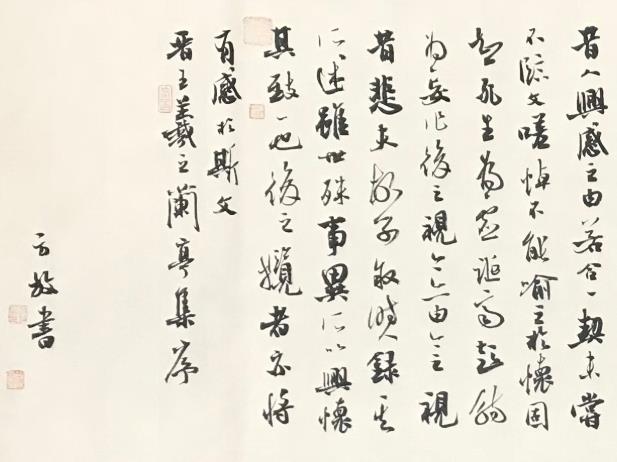 昔人興感之由若合一契未嘗
不臨文嗟悼不能喻之於懷固
知死生為虛誕齊彭殤
為妄作後之視今亦由今之視
昔悲夫故列敘時人錄其
所述雖世殊事異所以興懷
其致一也後之攬者亦將
有感於斯文
晉王羲之蘭亭集序
方書